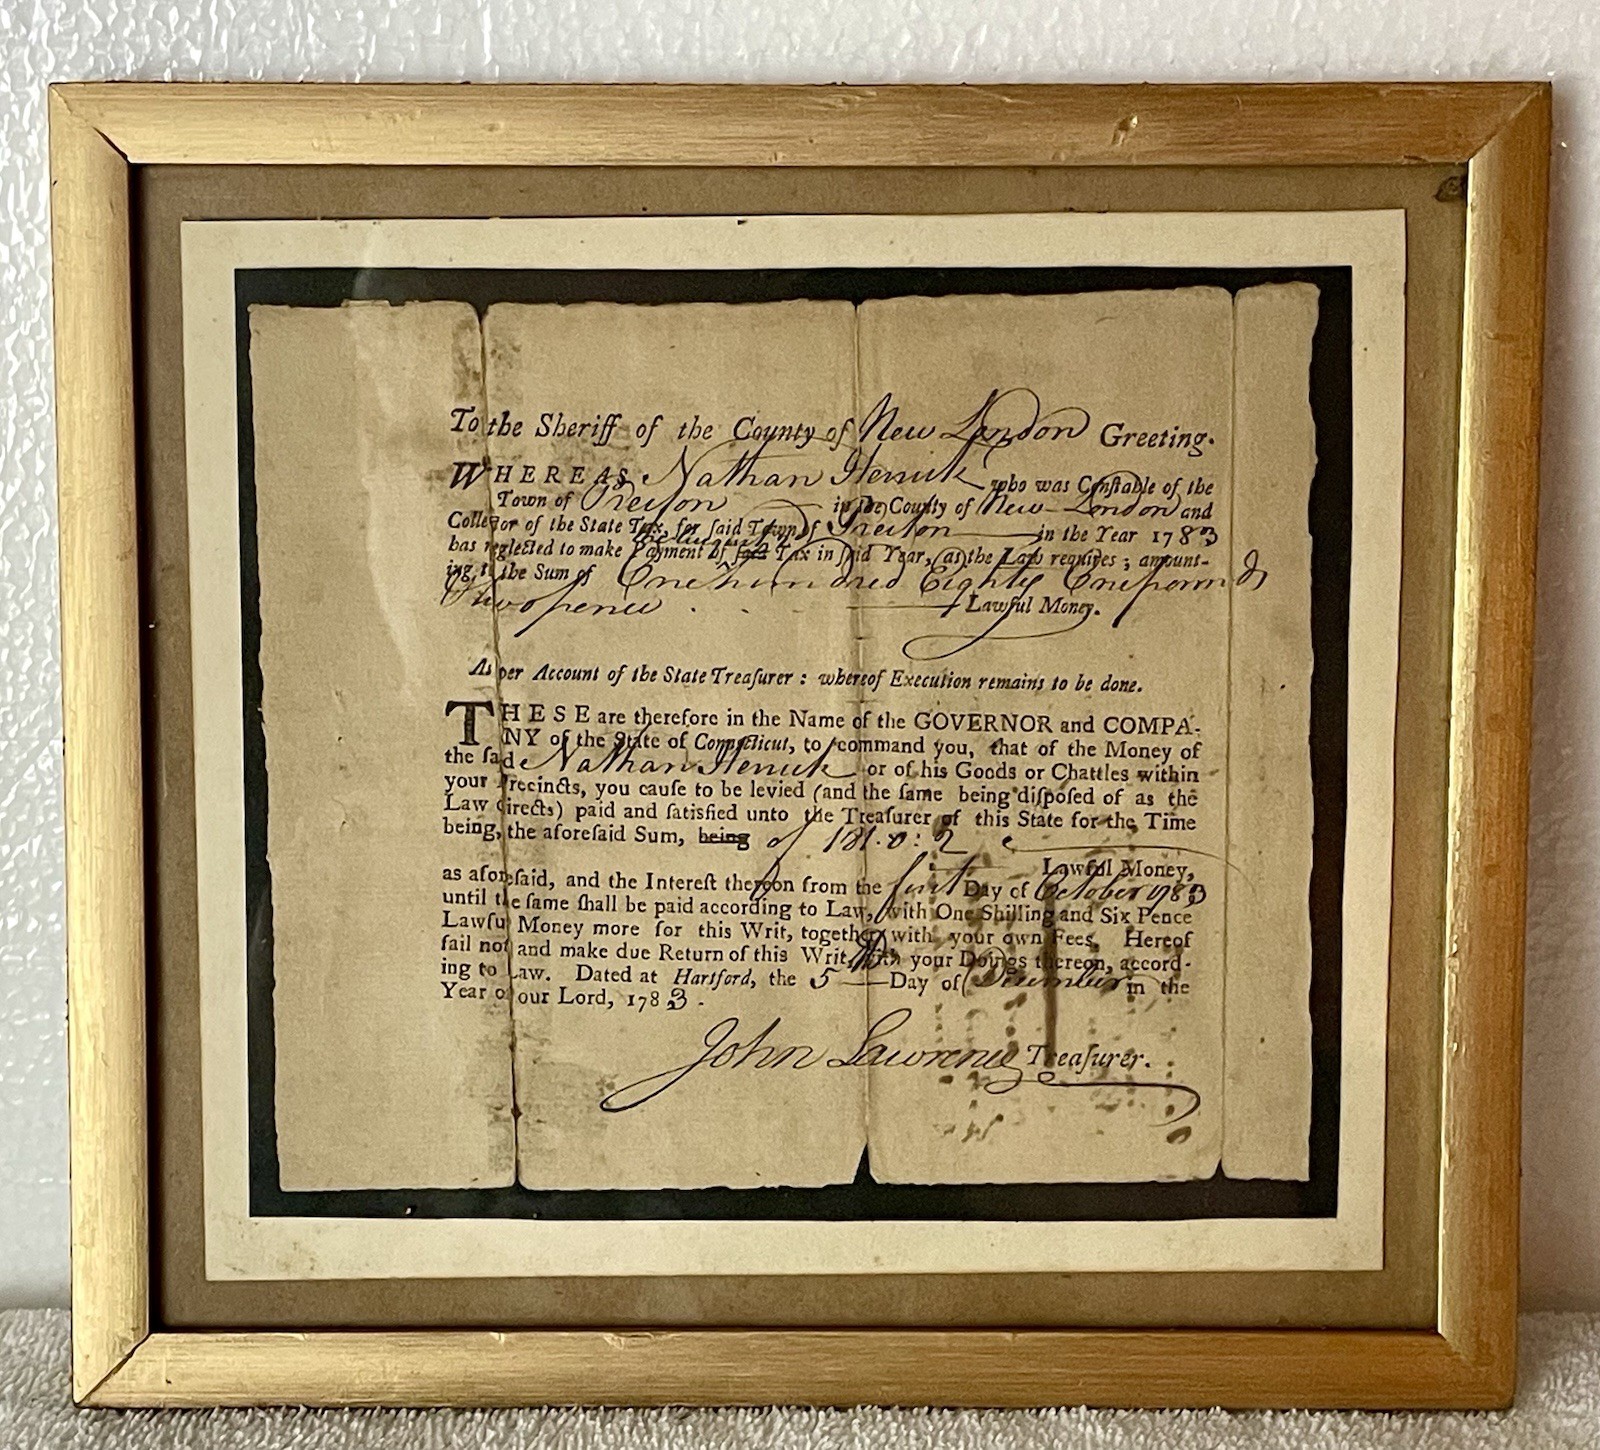 To the Sheriff of the County of New London Greeting.
WHEREAS Nathan Herrick who was Conſtable of the
Town of Preſton in the County of New-London and
Collector of the State Tax, for ſaid Town of Preſton in the Year 1783
has neglected to make Payment of ſaid Tax in ſaid Year, (as the Law requires; amount-
ing to the Sum of One hundred Eighty One pound
Two pence Lawful Money.
As per Account of the State Treaſurer: whereof Execution remains to be done.
THESE are therefore in the Name of the GOVERNOR and COMPA-
NY of the State of Connecticut, to command you, that of the Money of
the ſaid Nathan Herrick or of his Goods or Chattles within
your Precincts, you cauſe to be levied (and the ſame being diſpoſed of as the
Law directs) paid and ſatisfied unto the Treaſurer of this State for the Time
being, the aforeſaid Sum, being of 181.0:2
Lawful Money,
as aforeſaid, and the Intereſt thereon from the firſt Day of October 1783
until the ſame ſhall be paid according to Law, with One Shilling and Six Pence
Lawful Money more for this Writ, together with your own Fees. Hereof
fail not and make due Return of this Writ, with your Doings thereon, accord-
ing to Law. Dated at Hartford, the 5 Day of December in the
Year of our Lord, 1783.
John Lawrence Treaſurer.